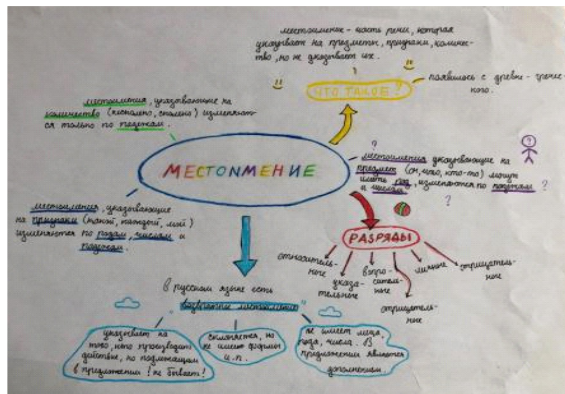 местоимение - часть речи, которая
указывает на предметы, признаки, количес-
тво, но не указывает их.
ЧТО ТАКОЕ?
появилось с древне-гречес
кого.
местоимения, указывающие на
количество (несколько, сколько) изменяют-
ся только по падежам.
МЕСТОИМЕНИЕ
?
местоимения указывающие на
предмет (он, что, кто-то) могут
иметь род, изменяются по падежам ?
и числам
?
местоимения, указывающие
на признаки (такой, каждый, мой)
изменяются по родам, числам и
падежам.
РАЗРЯДЫ
относитель-
ные
указа-
тельные
вопро-
ситель-
ные
личные
отрицатель-
ное
отрицатель-
ные
в русском языке есть
возвратное местоимение
указывает на
того, кто производит
действие, но подлежащим
в предложении! не бывает!
склоняется, но
не имеет формы
и.п.
не имеет лица,
рода, числа. В
предложении является
дополнением